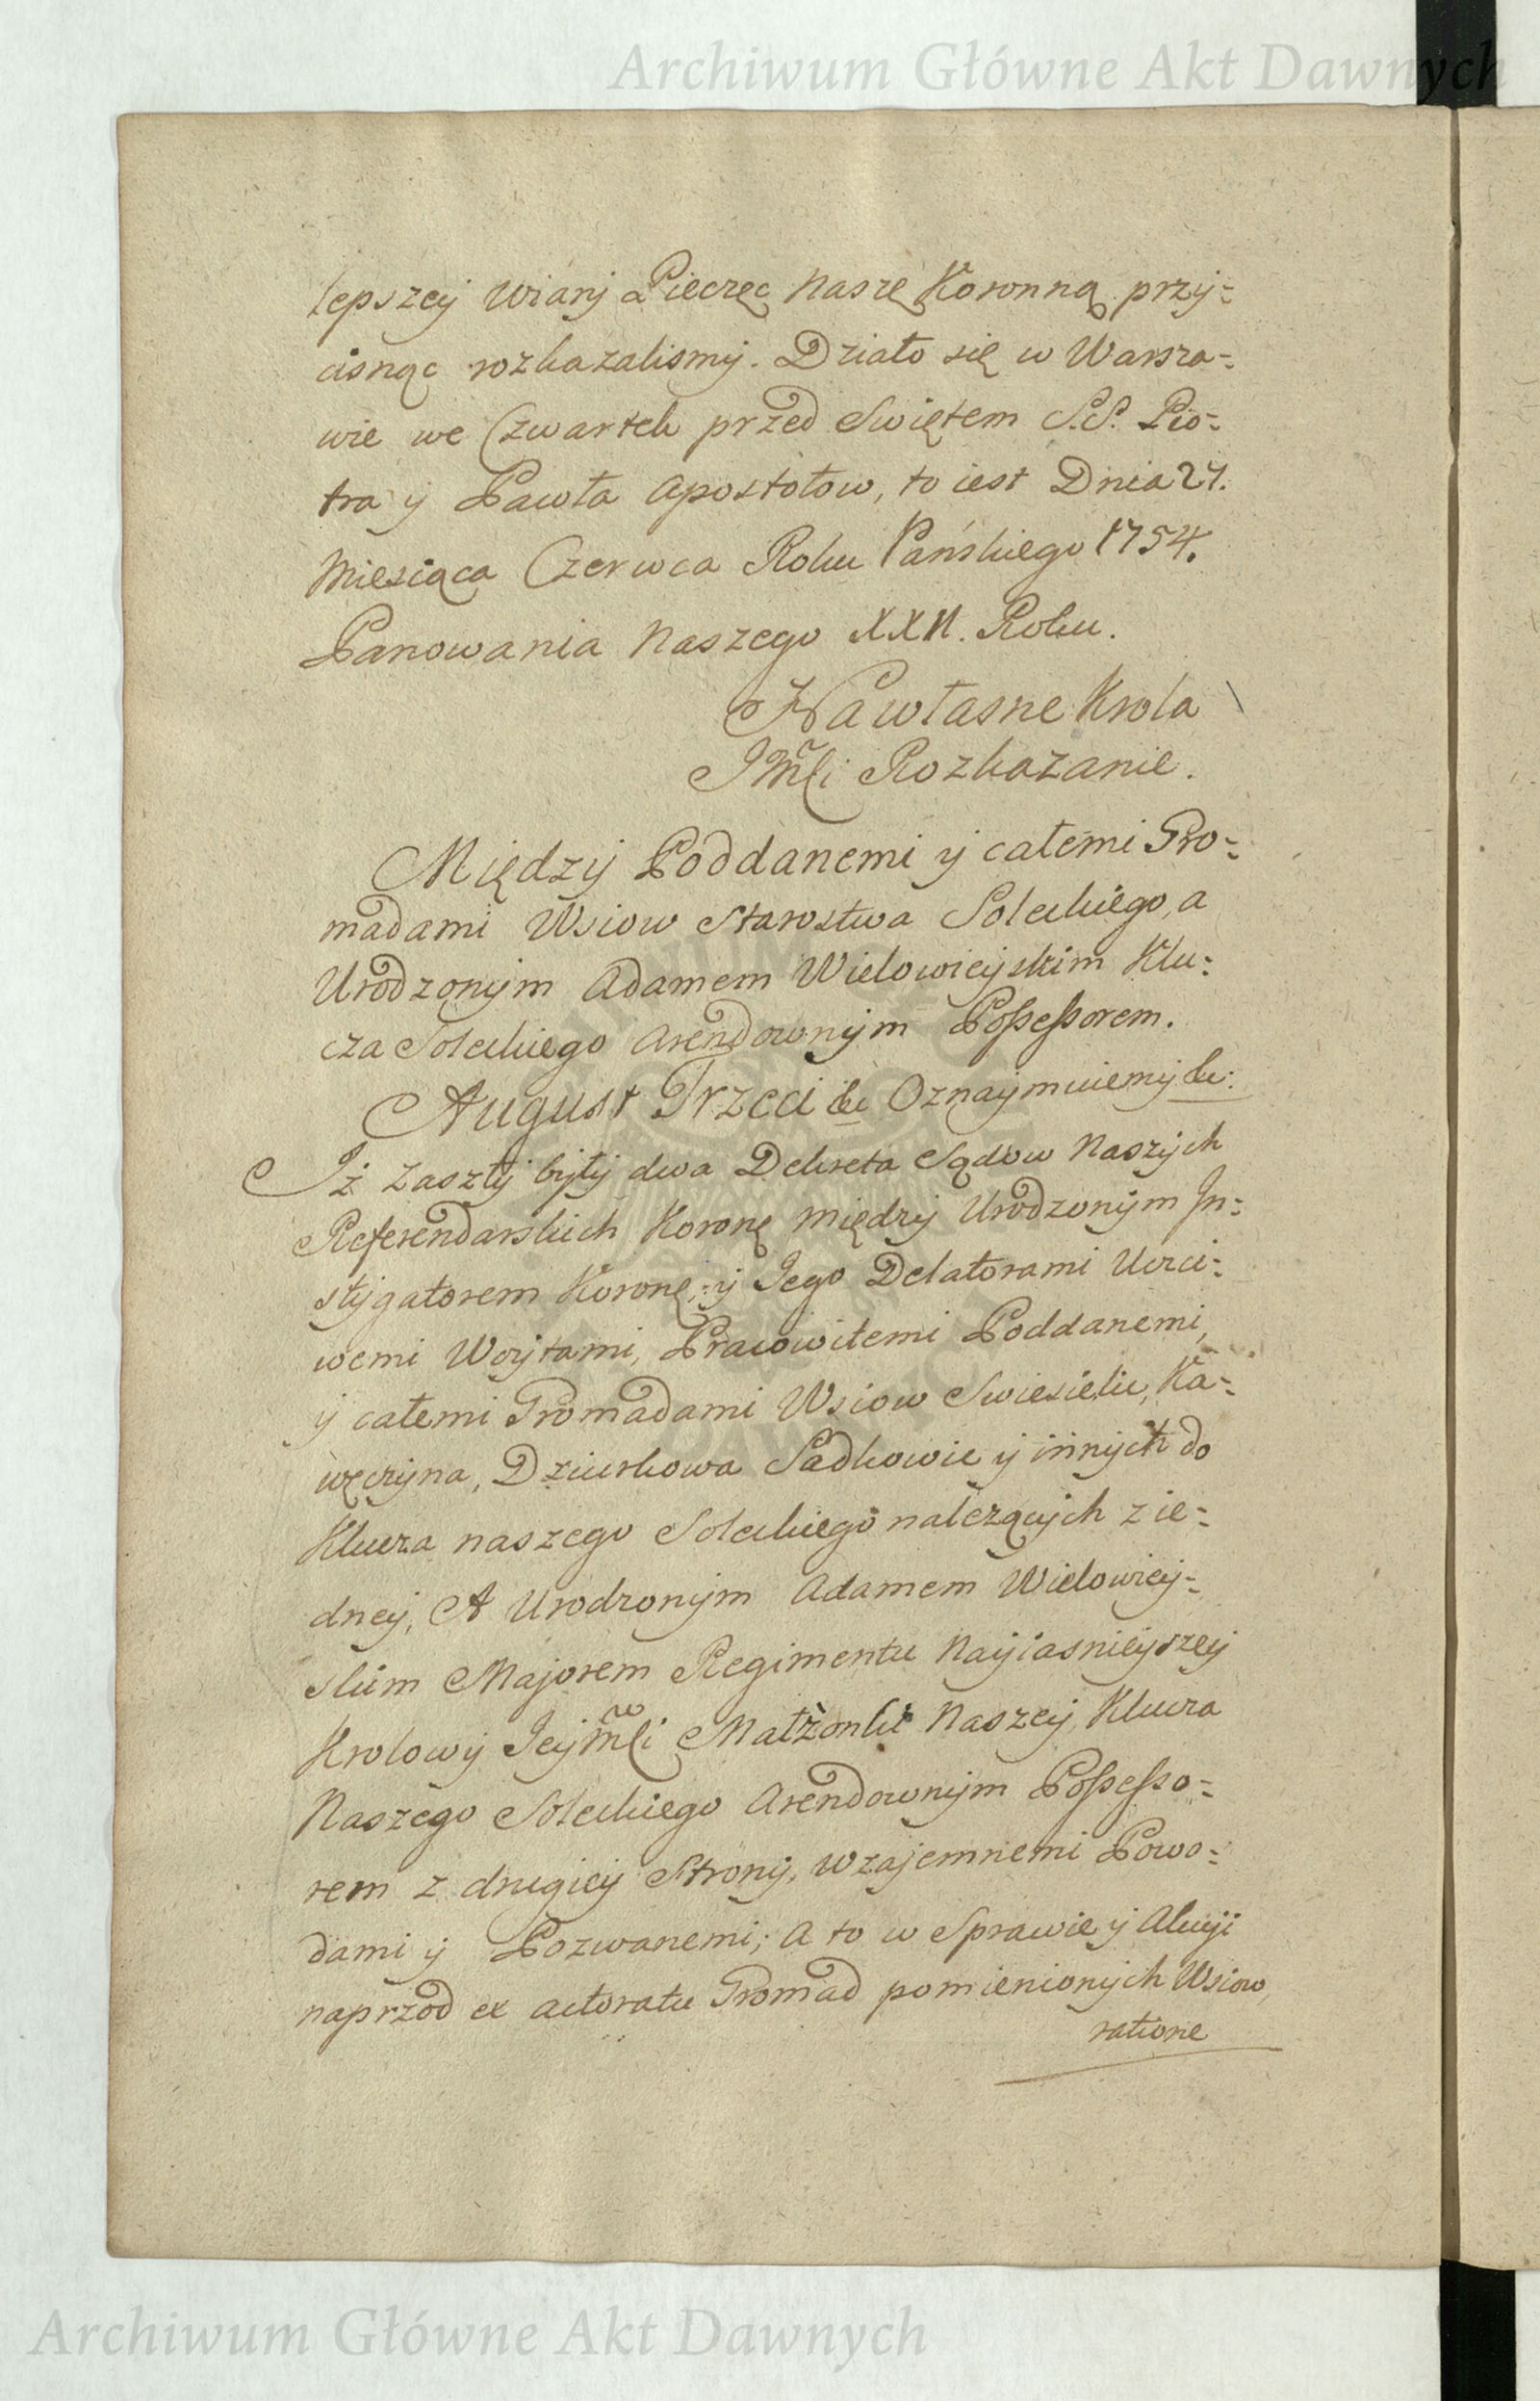 Archiwum Główne Akt Dawnych
lepszey wiary Pieczęc Naszę Koronną przy=
cisnąc rozkazalismy. Działo się w Warsza=
wie we Czwartek przed Swiętem S.S. Pio=
tra y Pawła Apostołow, to iest Dnia 27.
Miesiąca Czerwca Roku Pańskiego 1754.
Panowania Naszego XXII. Roku.
Na własne Krola
JMći Rozkazanie.
Między Poddanemi y całemi Gro=
madami Wsiow Starostwa Soleckiego, a
Urodzonym Adamem Wielowieyskim Klu=
cza Soleckiego Arendownym Possessorem.
August Trzeci &c Oznaymuiemy &c:
Iż zaszły były dwa Dekreta Sądow Naszych
Referendarskich Koronę między Urodzonym In=
stygatorem Koronę, y Jego Delatorami Uczci=
wemi Woytami, Pracowitemi Poddanemi,
y całemi Gromadami Wsiow Swiesielic, Ka=
węczyna, Dziurkowa Sadkowic y innych do
Klucza naszego Soleckiego należących z ie=
dney, A Urodzonym Adamem Wielowiey=
skim Majorem Regimentu Nayiasnieyszey
Krolowy Jeymći Małżonki Naszey, Klucza
Naszego Soleckiego Arendownym Possesso=
rem z drugiey Strony, wzajemnemi Powo=
dami y Pozwanemi; A to w Sprawie y Akcyi
naprzod ex actoratu Gromad pomienionych Wsiow,
ratione
Archiwum Główne Akt Dawnych